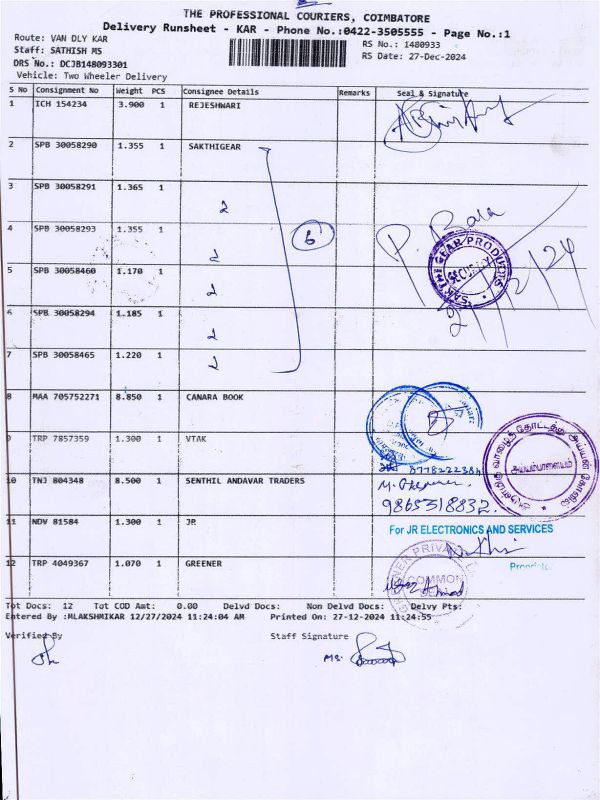 THE PROFESSIONAL COURIERS, COIMBATORE
Delivery Runsheet - KAR - Phone No.:0422-3505555 - Page No.:1
Route: VAN DLY KAR
RS No.: 1480933
Staff: SATHISH MS
RS Date: 27-Dec-2024
DRS No.: DCJB148093301
Vehicle: Two Wheeler Delivery
S No Consignment No Weight PCS Consignee Details Remarks Seal & Signature
1 ICH 154234 3.900 1 REJESHWARI
2 SPB 30058290 1.355 1 SAKTHIGEAR
3 SPB 30058291 1.365 1
4 SPB 30058293 1.355 1
6
P. Bala
5 SPB 30058460 1.170 1
SAKTHI GEAR PRODUCTS
SECURITY
27/12/24
6 SPB 30058294 1.185 1
7 SPB 30058465 1.220 1
8 MAA 705752271 8.850 1 CANARA BOOK
9 TRP 7857359 1.300 1 VTAK
அருள்மிகு வாழைத்தோட்டத்து அய்யன் கோவில்
அய்யம்பாளையம்
10 TNJ 804348 8.500 1 SENTHIL ANDAVAR TRADERS
9865318832.
11 NDV 81584 1.300 1 JR
For JR ELECTRONICS AND SERVICES
12 TRP 4049367 1.070 1 GREENER
COMMON
Tot Docs: 12 Tot COD Amt: 0.00 Delvd Docs: Non Delvd Docs: Delvy Pts:
Entered By :MLAKSHMIKAR 12/27/2024 11:24:04 AM Printed On: 27-12-2024 11:24:55
Verified By
Staff Signature